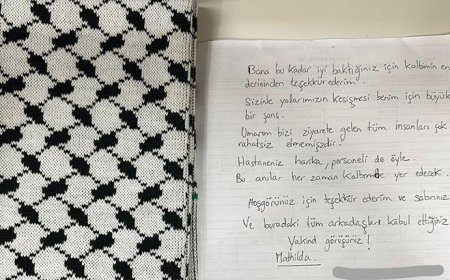 Bana bu kadar iyi baktığınız için kalbimin en
derininden teşekkür ederim.
Sizinle yollarımızın kesişmesi benim için büyük
bir şans.
Umarım bizi ziyarete gelen tüm insanları çok
rahatsız etmemişizdir.
Hastaneniz harika, personeli de öyle.
Bu anılar her zaman kalbimde yer edecek.
Hoşgörünüz için teşekkür ederim ve sabrınız
Ve buradaki tüm arkadaşları kabul ettiğiniz
Yakınd görüşürüz!
Mathilda.